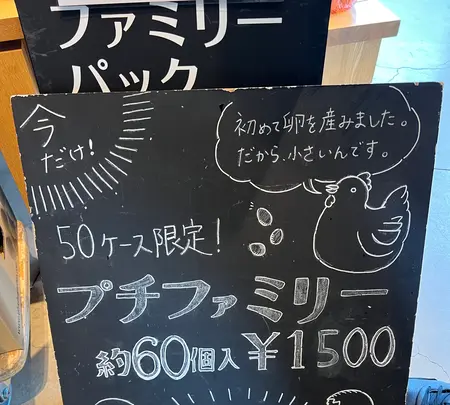 ファミリー
パック
今
だけ!
初めて卵を産みました。
だから、小さいんです。
50ケース限定!
プチファミリー
約60個入 ¥1500